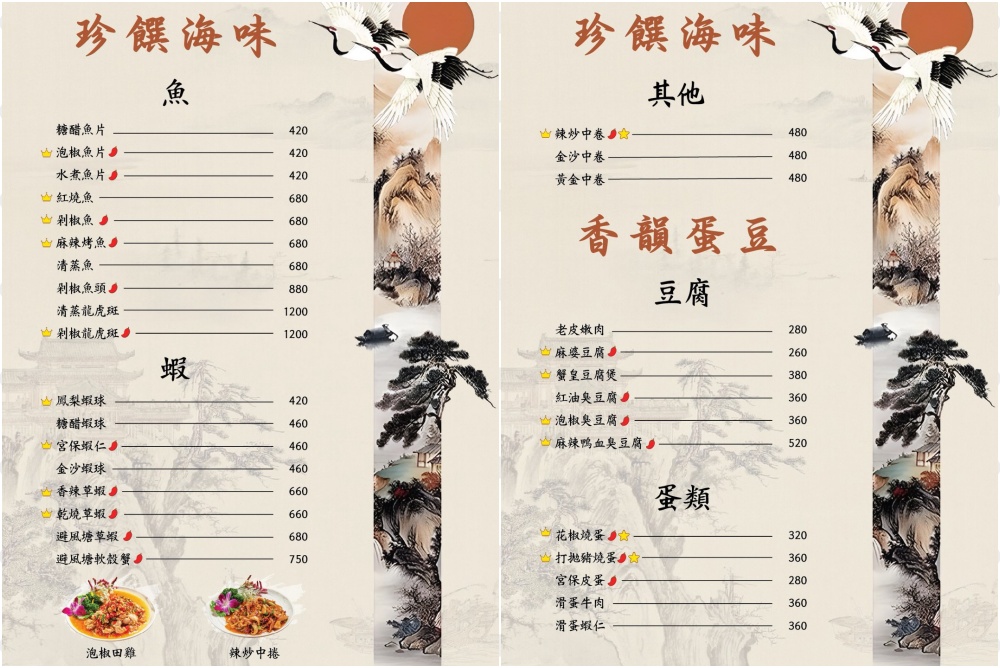 珍饌海味
魚
糖醋魚片 420
泡椒魚片 420
水煮魚片 420
紅燒魚 680
剁椒魚 680
麻辣烤魚 680
清蒸魚 680
剁椒魚頭 880
清蒸龍虎斑 1200
剁椒龍虎斑 1200
蝦
鳳梨蝦球 420
糖醋蝦球 460
宮保蝦仁 460
金沙蝦球 460
香辣草蝦 660
乾燒草蝦 660
避風塘草蝦 680
避風塘軟殼蟹 750
泡椒田雞 辣炒中捲
珍饌海味
其他
辣炒中卷 480
金沙中卷 480
黃金中卷 480
香韻蛋豆
豆腐
老皮嫩肉 280
麻婆豆腐 260
蟹皇豆腐煲 380
紅油臭豆腐 360
泡椒臭豆腐 360
麻辣鴨血臭豆腐 520
蛋類
花椒燒蛋 320
打拋豬燒蛋 360
宮保皮蛋 280
滑蛋牛肉 360
滑蛋蝦仁 360